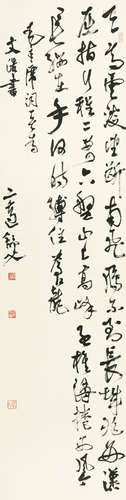 天高雲淡望斷南飛雁不到長城非好漢
屈指行程二萬六盤山上高峰紅旗漫捲西風
今日長纓在手何時縛住蒼龍